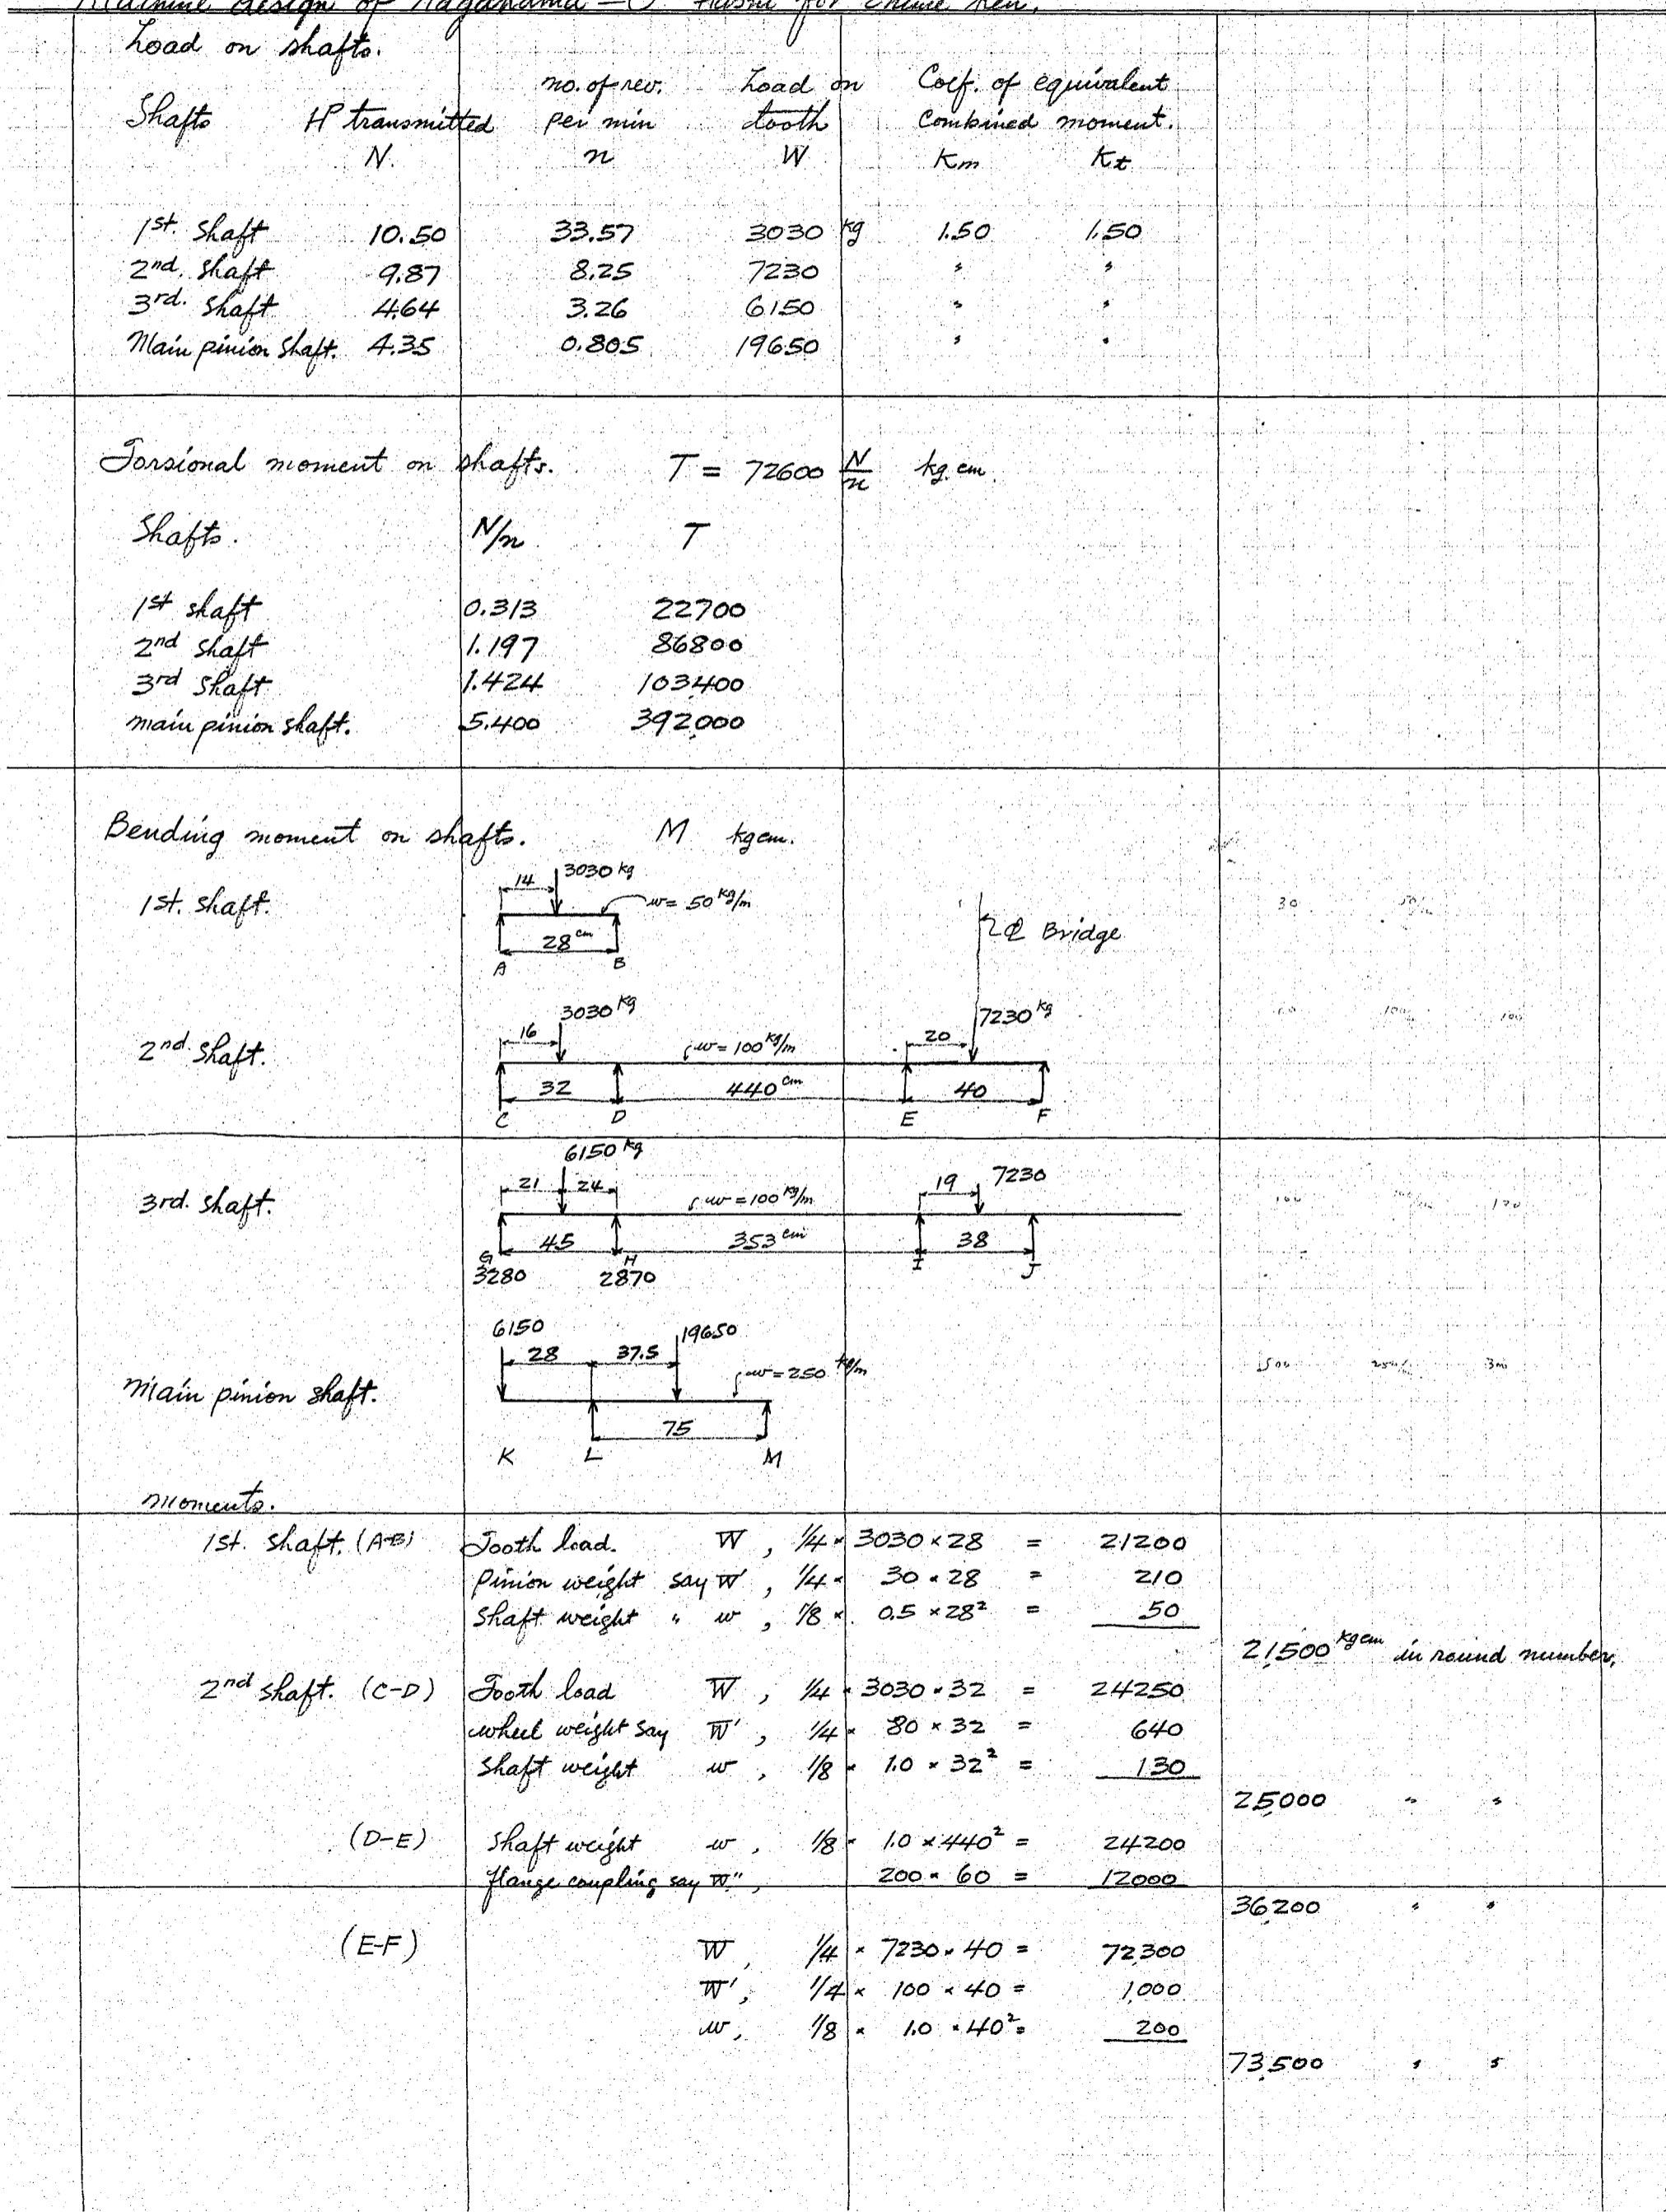 Machine design of Nagahama-O Hashi for Ehime Ken.
Load on shafts.
Shafts HP transmitted no. of rev. per min Load on tooth Coef. of equivalent combined moment.
N. n W Km Kt
1st. shaft 10.50 33.57 3030 kg 1.50 1.50
2nd. shaft 9.87 8.25 7230 " "
3rd. shaft 4.64 3.26 6150 " "
Main pinion shaft. 4.35 0.805 19650 " "
Torsional moment on shafts. T = 72600 N/n kg.cm.
Shafts. N/n T
1st shaft 0.313 22700
2nd shaft 1.197 86800
3rd shaft 1.424 103400
main pinion shaft. 5.400 392000
Bending moment on shafts. M kgcm.
1st. shaft.
14 3030 kg
w = 50 kg/m
28 cm
A B
℄ Bridge
2nd. shaft.
3030 kg 7230 kg
16 w = 100 kg/m 20
32 440 cm 40
C D E F
3rd. shaft.
6150 kg
21 24 w = 100 kg/m 19 7230
45 353 cm 38
G H I J
3280 2870
Main pinion shaft.
6150 19650
28 37.5 w = 250 kg/m
75
K L M
moments.
1st. shaft. (A-B) Tooth load. W, 1/4 × 3030 × 28 = 21200
Pinion weight say W', 1/4 × 30 × 28 = 210
Shaft weight " w, 1/8 × 0.5 × 28² = 50
21,500 kgcm in round number,
2nd shaft. (C-D) Tooth load W, 1/4 × 3030 × 32 = 24250
wheel weight say W', 1/4 × 80 × 32 = 640
Shaft weight w, 1/8 × 1.0 × 32² = 130
25,000 " "
(D-E) Shaft weight w, 1/8 × 1.0 × 440² = 24200
flange coupling say W", 200 × 60 = 12000
36,200 " "
(E-F) W, 1/4 × 7230 × 40 = 72,300
W', 1/4 × 100 × 40 = 1,000
w, 1/8 × 1.0 × 40² = 200
73,500 " "